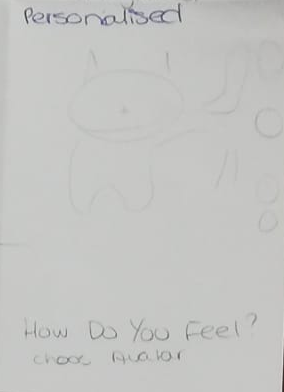 Personalised
How Do You Feel?
choos Avatar